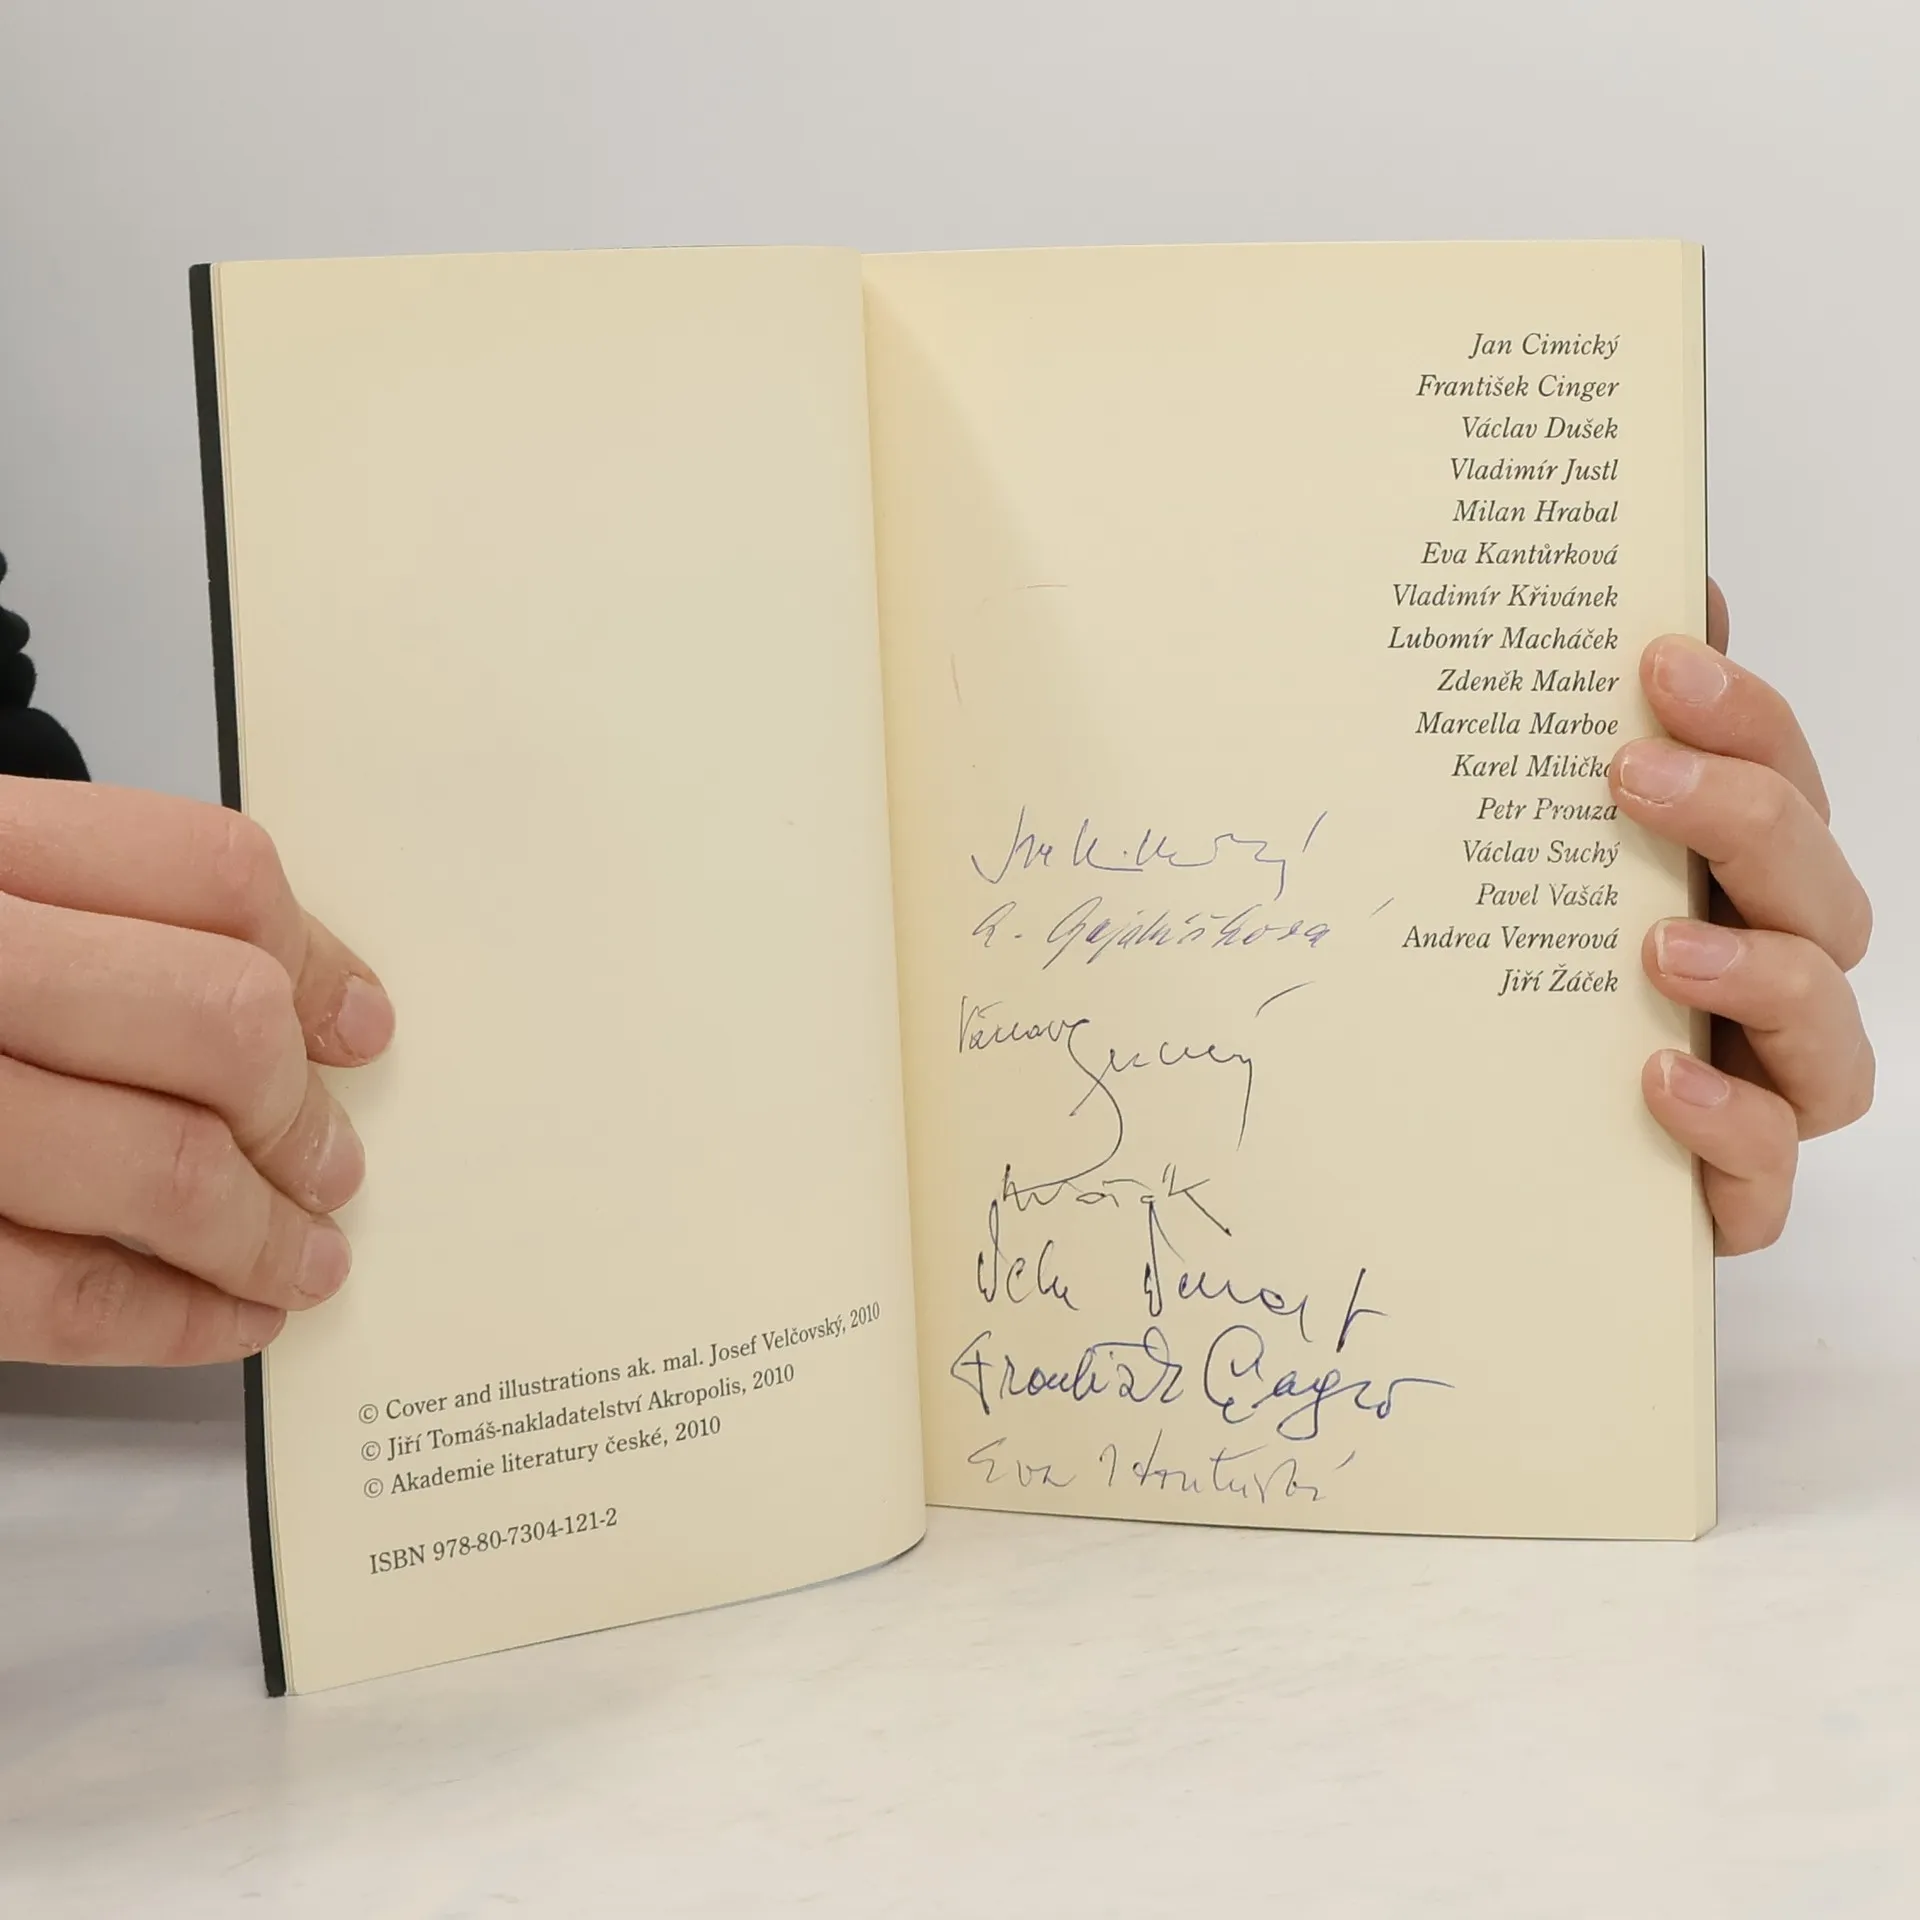 © Cover and illustrations ak. mal. Josef Velčovský, 2010
© Jiří Tomáš-nakladatelství Akropolis, 2010
© Akademie literatury české, 2010
ISBN 978-80-7304-121-2
Jan Cimický
František Cinger
Václav Dušek
Vladimír Justl
Milan Hrabal
Eva Kantůrková
Vladimír Křivánek
Lubomír Macháček
Zdeněk Mahler
Marcella Marboe
Karel Miličk
Petr Prouza
Václav Suchý
Pavel Vašák
Andrea Vernerová
Jiří Žáček
Václav Suchý
František
Eva